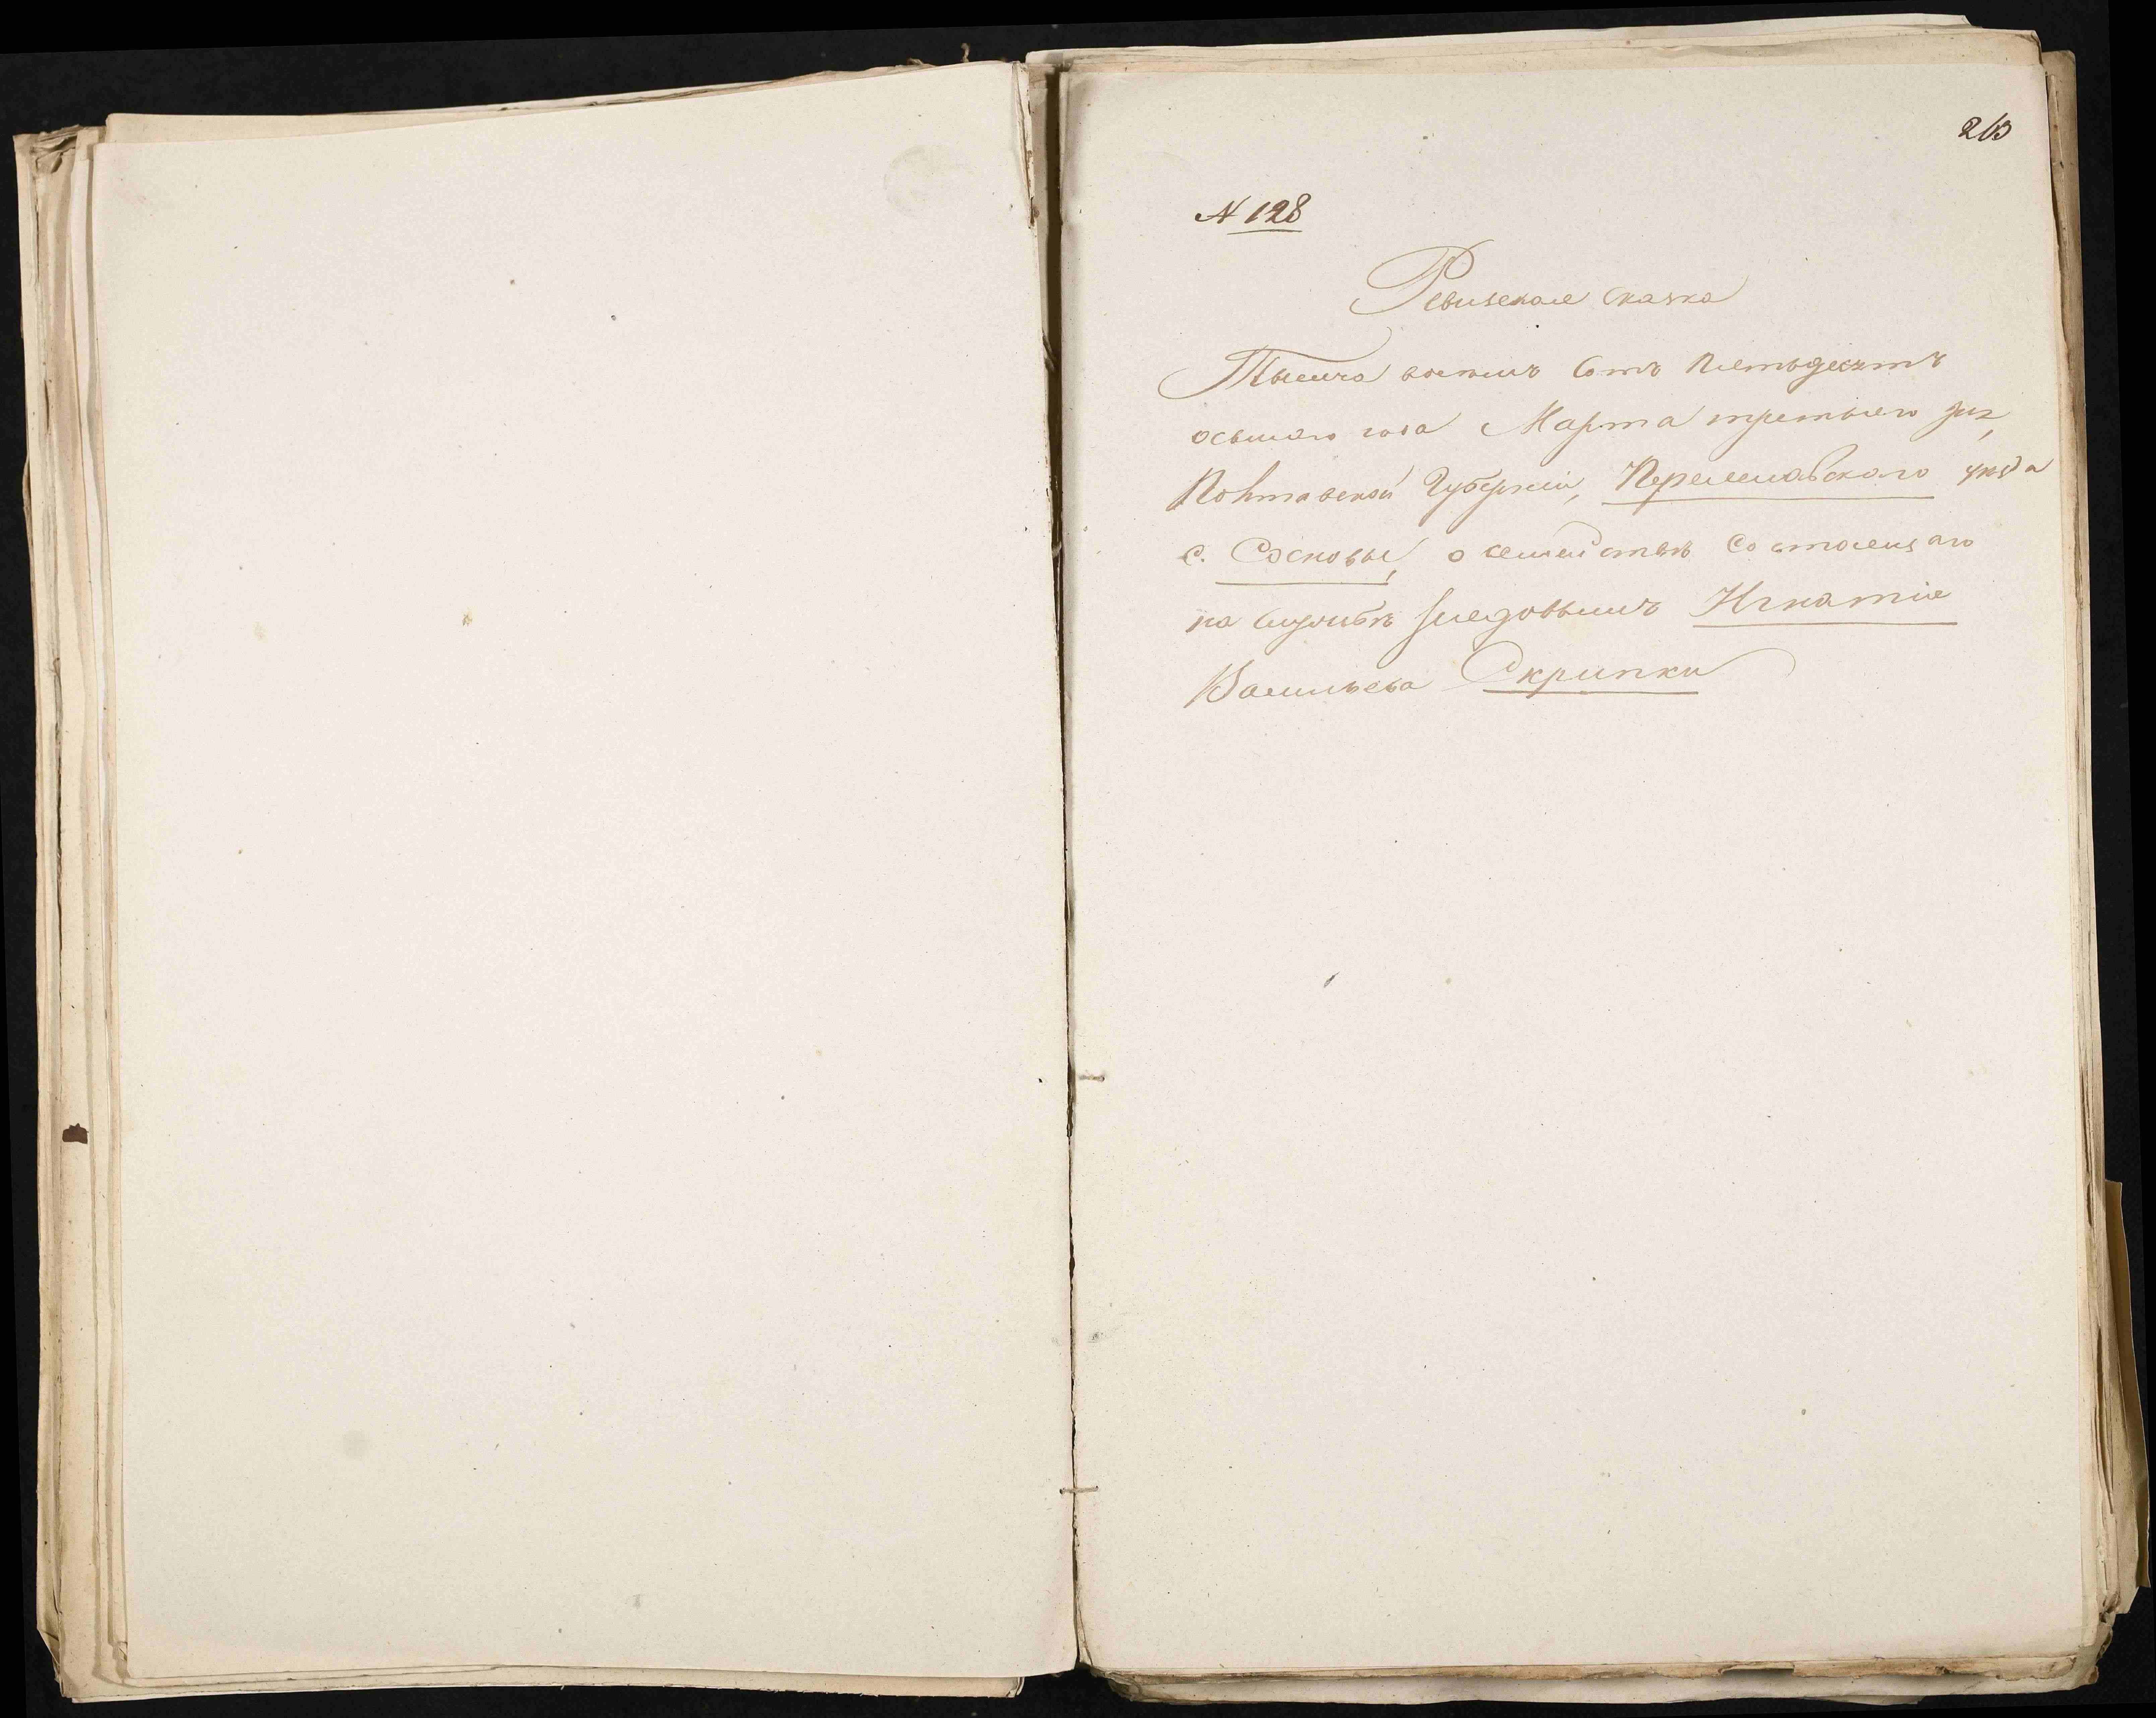 263
N 128
Ревизская сказка
Тысяча восемь сотъ Пятьдесятъ
осьмаго года Марта третьяго дня,
Полтавской Губерніи, Переяславскаго уѣзда
с. Сосновы, о семействѣ состоящаго
на службѣ рядовымъ Игнатія
Васильева Скрипки